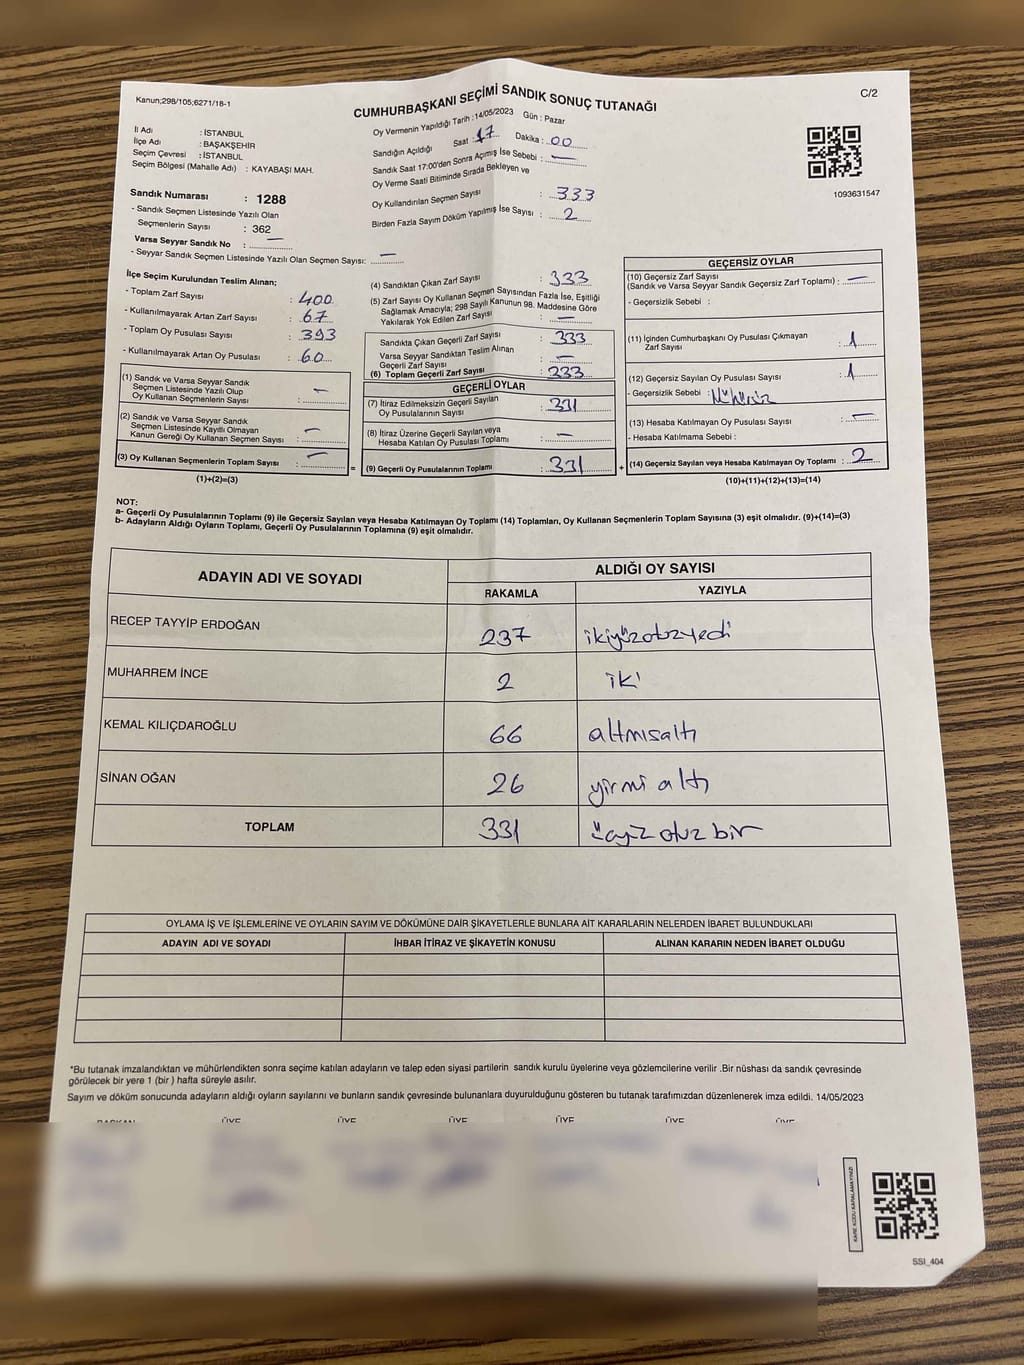 Kanun;298/105;6271/18-1
CUMHURBAŞKANI SEÇİMİ SANDIK SONUÇ TUTANAĞI
C/2
İl Adı : İSTANBUL
İlçe Adı : BAŞAKŞEHİR
Seçim Çevresi : İSTANBUL
Seçim Bölgesi (Mahalle Adı) : KAYABAŞI MAH.
Oy Vermenin Yapıldığı Tarih :14/05/2023 Gün : Pazar
Sandığın Açıldığı Saat : 17 Dakika : 00
Sandık Saat 17:00'den Sonra Açılmış İse Sebebi : —
Oy Verme Saati Bitiminde Sırada Bekleyen ve
Oy Kullandırılan Seçmen Sayısı : 333
Birden Fazla Sayım Döküm Yapılmış İse Sayısı : 2
1093631547
Sandık Numarası : 1288
- Sandık Seçmen Listesinde Yazılı Olan
Seçmenlerin Sayısı : 362
Varsa Seyyar Sandık No : —
- Seyyar Sandık Seçmen Listesinde Yazılı Olan Seçmen Sayısı: —
İlçe Seçim Kurulundan Teslim Alınan;
- Toplam Zarf Sayısı : 400
- Kullanılmayarak Artan Zarf Sayısı : 67
- Toplam Oy Pusulası Sayısı : 393
- Kullanılmayarak Artan Oy Pusulası : 60
(1) Sandık ve Varsa Seyyar Sandık
Seçmen Listesinde Yazılı Olup
Oy Kullanan Seçmenlerin Sayısı : —
(2) Sandık ve Varsa Seyyar Sandık
Seçmen Listesinde Kayıtlı Olmayan
Kanun Gereği Oy Kullanan Seçmen Sayısı : —
(3) Oy Kullanan Seçmenlerin Toplam Sayısı : —
(1)+(2)=(3)
(4) Sandıktan Çıkan Zarf Sayısı : 333
(5) Zarf Sayısı Oy Kullanan Seçmen Sayısından Fazla İse, Eşitliği
Sağlamak Amacıyla; 298 Sayılı Kanunun 98. Maddesine Göre
Yakılarak Yok Edilen Zarf Sayısı : —
Sandıkta Çıkan Geçerli Zarf Sayısı : 333
Varsa Seyyar Sandıktan Teslim Alınan
Geçerli Zarf Sayısı : —
(6) Toplam Geçerli Zarf Sayısı : 333
GEÇERLİ OYLAR
(7) İtiraz Edilmeksizin Geçerli Sayılan
Oy Pusulalarının Sayısı : 331
(8) İtiraz Üzerine Geçerli Sayılan veya
Hesaba Katılan Oy Pusulaları Toplamı : —
= (9) Geçerli Oy Pusulalarının Toplamı : 331 +
GEÇERSİZ OYLAR
(10) Geçersiz Zarf Sayısı
(Sandık ve Varsa Seyyar Sandık Geçersiz Zarf Toplamı) : —
- Geçersizlik Sebebi :
(11) İçinden Cumhurbaşkanı Oy Pusulası Çıkmayan
Zarf Sayısı : 1
(12) Geçersiz Sayılan Oy Pusulası Sayısı : 1
- Geçersizlik Sebebi : Mühürsüz
(13) Hesaba Katılmayan Oy Pusulası Sayısı : —
- Hesaba Katılmama Sebebi :
(14) Geçersiz Sayılan veya Hesaba Katılmayan Oy Toplamı : 2
(10)+(11)+(12)+(13)=(14)
NOT:
a- Geçerli Oy Pusulalarının Toplamı (9) ile Geçersiz Sayılan veya Hesaba Katılmayan Oy Toplamı (14) Toplamları, Oy Kullanan Seçmenlerin Toplam Sayısına (3) eşit olmalıdır. (9)+(14)=(3)
b- Adayların Aldığı Oyların Toplamı, Geçerli Oy Pusulalarının Toplamına (9) eşit olmalıdır.
ADAYIN ADI VE SOYADI
ALDIĞI OY SAYISI
RAKAMLA YAZIYLA
RECEP TAYYİP ERDOĞAN 237 ikiyüzotuzyedi
MUHARREM İNCE 2 iki
KEMAL KILIÇDAROĞLU 66 altmışaltı
SİNAN OĞAN 26 yirmi altı
TOPLAM 331 üçyüz otuz bir
OYLAMA İŞ VE İŞLEMLERİNE VE OYLARIN SAYIM VE DÖKÜMÜNE DAİR ŞİKAYETLERLE BUNLARA AİT KARARLARIN NELERDEN İBARET BULUNDUKLARI
ADAYIN ADI VE SOYADI İHBAR İTİRAZ VE ŞİKAYETİN KONUSU ALINAN KARARIN NEDEN İBARET OLDUĞU
*Bu tutanak imzalandıktan ve mühürlendikten sonra seçime katılan adayların ve talep eden siyasi partilerin sandık kurulu üyelerine veya gözlemcilerine verilir .Bir nüshası da sandık çevresinde
görülecek bir yere 1 (bir ) hafta süreyle asılır.
Sayım ve döküm sonucunda adayların aldığı oyların sayılarını ve bunların sandık çevresinde bulunanlara duyurulduğunu gösteren bu tutanak tarafımızdan düzenlenerek imza edildi. 14/05/2023
BAŞKAN ÜYE ÜYE ÜYE ÜYE ÜYE ÜYE
KARE KODU KARALAMAYINIZ!
SSI_404